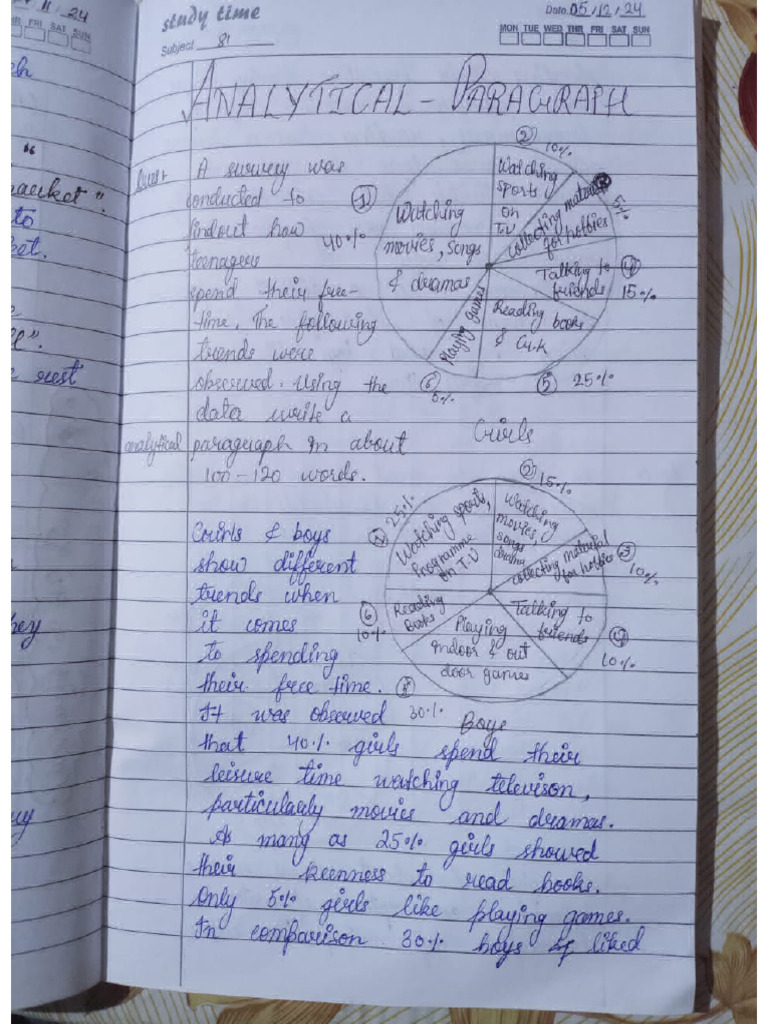 11, 24
FRI SAT SUN
"
to
rest
study time
Subject 81
Date 05/12/24
MON TUE WED THR FRI SAT SUN
ANALYTICAL - PARAGRAPH
A survey was
conducted to
findout how
teenagers
spend their free-
time. The following
trends were
observed. Using the
data write a
analytical paragraph in about
100-120 words.
① 40%
Watching
movies, songs
& dramas
② 10%
Watching
sports
on
T.V
5%
collecting material
for hobbies
④ 15%
Talking to
friends
⑤ 25%
Reading books
& G.K
⑥ 5%
Playing games
Girls
① 25%
Watching sports,
Programme
on T.V
② 15%
Watching
movies,
songs
③ 10%
collecting material
for hobbies
④ 10%
Talking to
friends
⑤ 30%
Playing
indoor & out
door games
⑥ 10%
Reading
Books
Boys
Girls & boys
show different
trends when
it comes
to spending
their free time.
It was observed
that 40% girls spend their
leisure time watching televison,
particularly movies and dramas.
As many as 25% girls showed
their keenness to read books.
Only 5% girls like playing games.
In comparison 30% boys liked